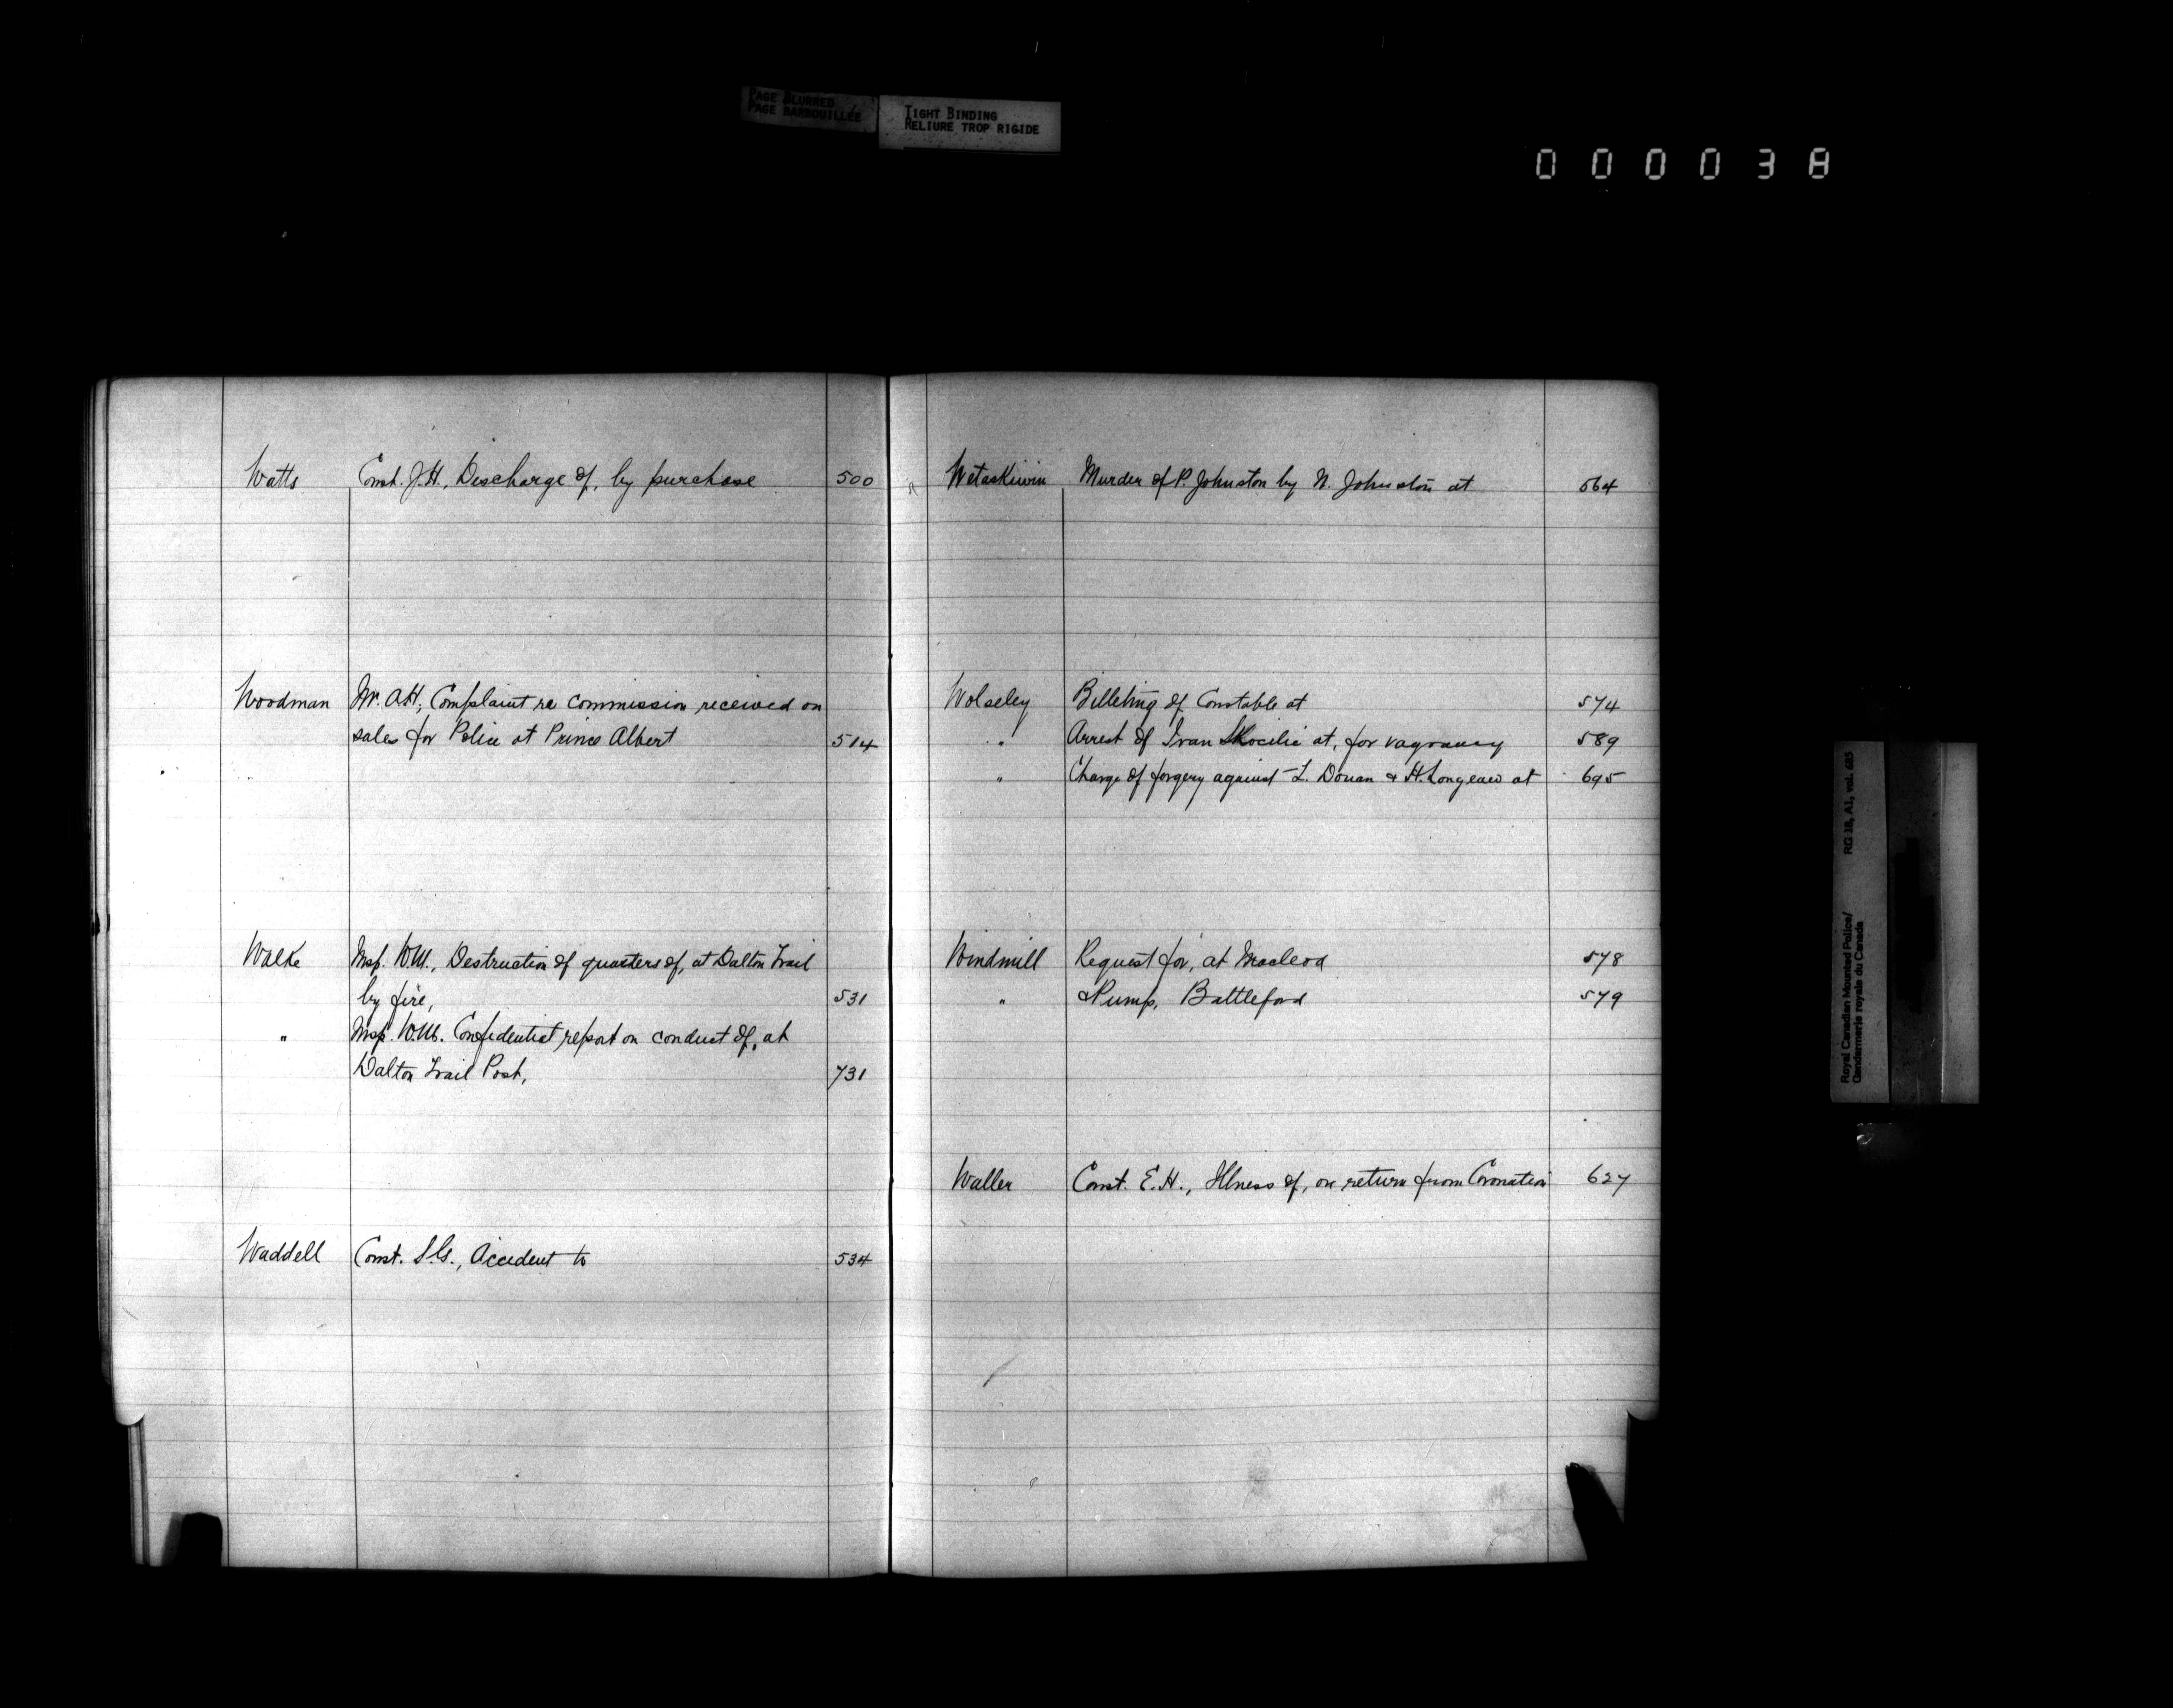 PAGE BLURRED
PAGE BARBOUILLÉE
TIGHT BINDING
RELIURE TROP RIGIDE
000038
Watts Const. J.H., Discharge of, by purchase 500
Woodman Mr. A.H, Complaint re commission received on
sales for Police at Prince Albert 514
Walke Insp. W.M., Destruction of quarters of, at Dalton Trail
by fire, 531
" Insp. W.M. Confidential report on conduct of, at
Dalton Trail Post, 731
Waddell Const. Accident to 534
Wetaskiwin Murder of P. Johnston by N. Johnston at 564
Wolseley Billeting of Constable at 574
" Arrest of Ivan Skocilic at, for vagrancy 589
" Charge of forgery against L. Douan & H. at 695
Windmill Request for, at Macleod 578
" & Pump, Battleford 579
Waller Const. E.H., Illness of, on return from Coronation 627
Royal Canadian Mounted Police/ RG 18, A1, vol. 685
Gendarmerie royale du Canada